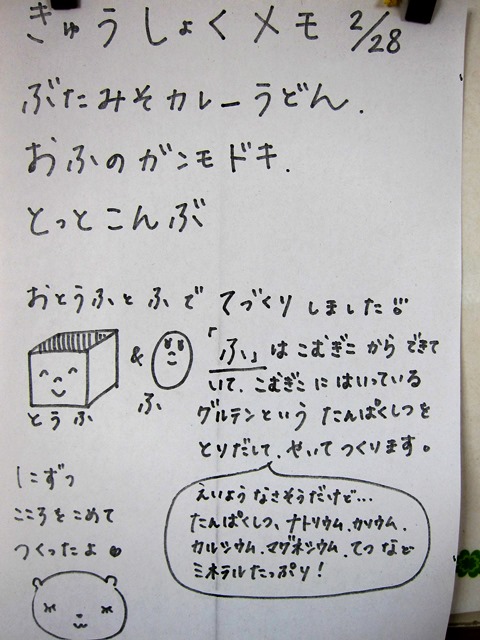 きゅうしょくメモ 2/28
ぶたみそカレーうどん.
おふのガンモドキ.
とっとこんぶ
おとうふとふで てづくりしました!!
& 「ふ」はこむぎこからできて
いて、こむぎこにはいっている
とうふ ふ グルテンという たんぱくしつを
とりだして、やいてつくります。
えいようなさそうだけど…
たんぱくしつ、ナトリウム、カリウム、
カルシウム、マグネシウム、てつなど
ミネラルたっぷり!
1こずつ
こころをこめて
つくったよ♥